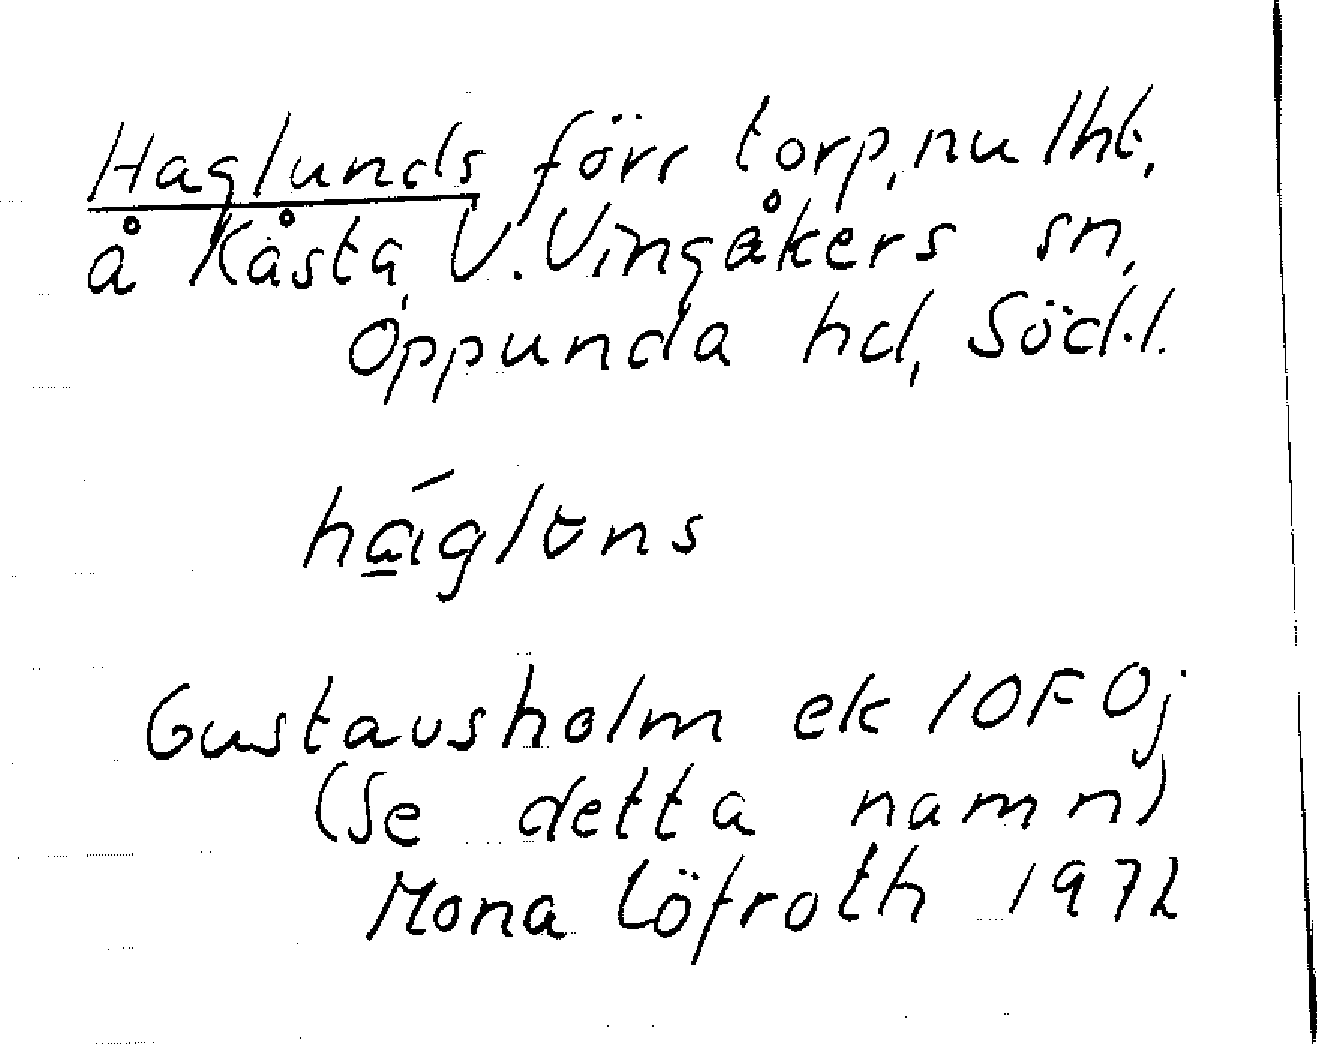 Haglunds förr torp, nu lht,
å Kåsta, V. Vingåkers sn,
Oppunda hd, Södl.
háglɯns
Gustavsholm ek 10F0j
(Se detta namn)
Mona Löfroth 1972